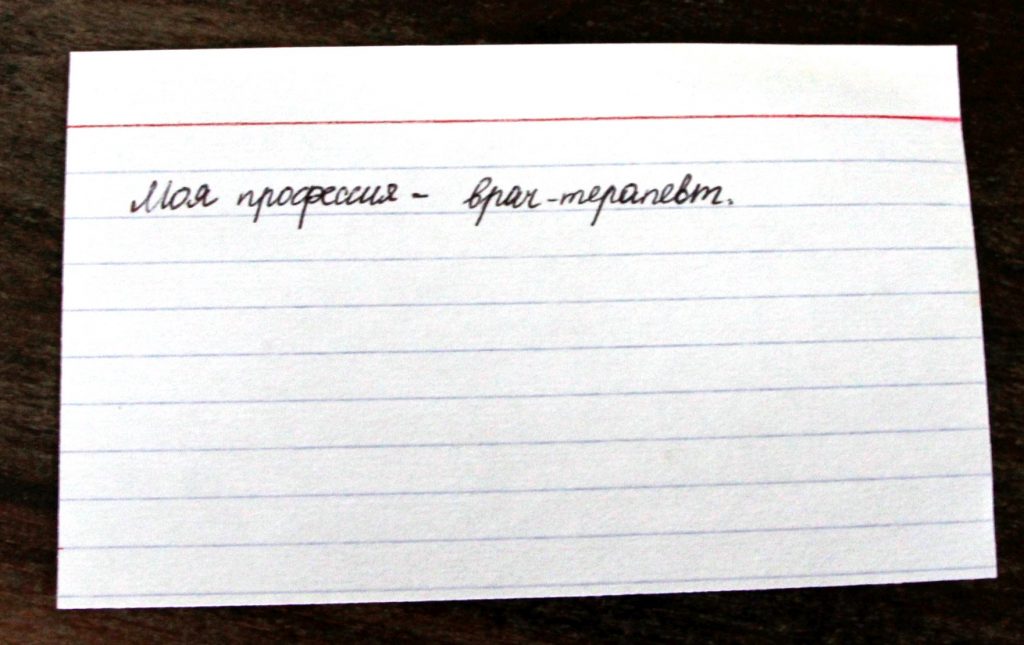 Моя профессия - врач-терапевт.